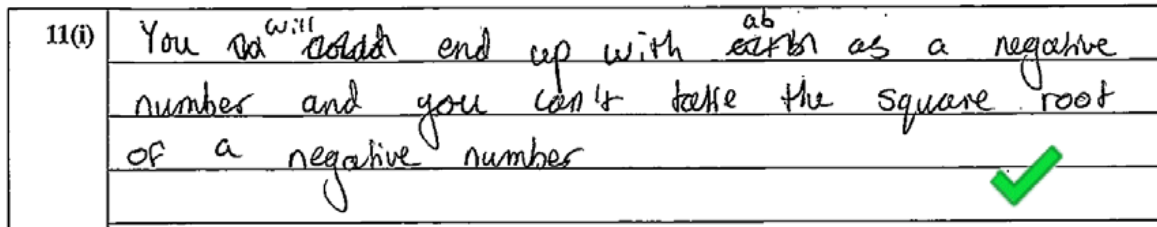 11(i)
You will end up with ab as a negative
number and you can't take the square root
of a negative number